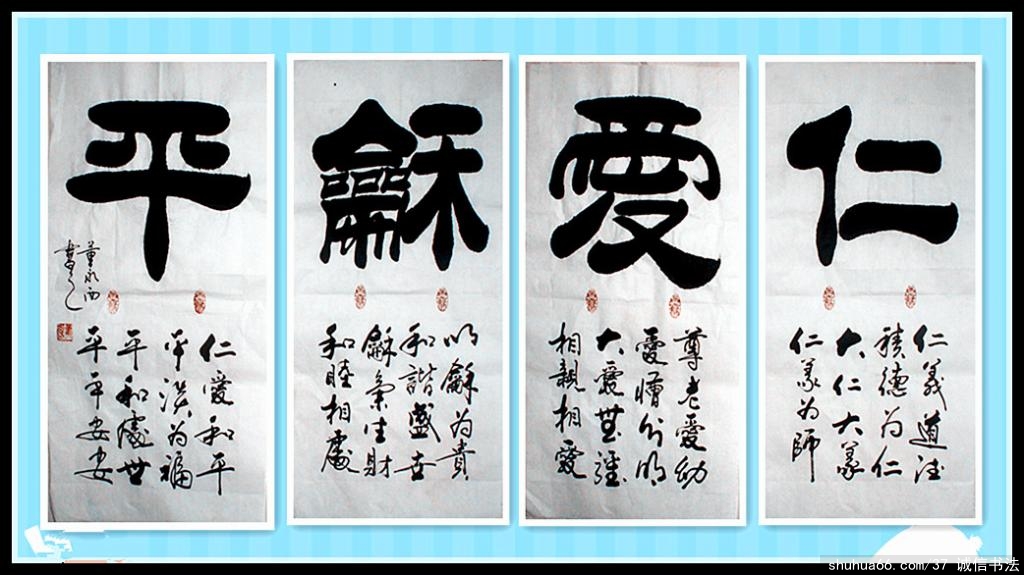 仁
仁義道德
積德为仁
大仁大義
仁義为師
愛
尊老愛幼
愛憎分明
大愛無疆
相親相愛
龢
以龢为貴
和諧盛世
龢氣生財
和睦相處
平
仁愛和平
平淡为福
平和處世
平平安安
董永西
書
shuhua66.com/37 诚信书法